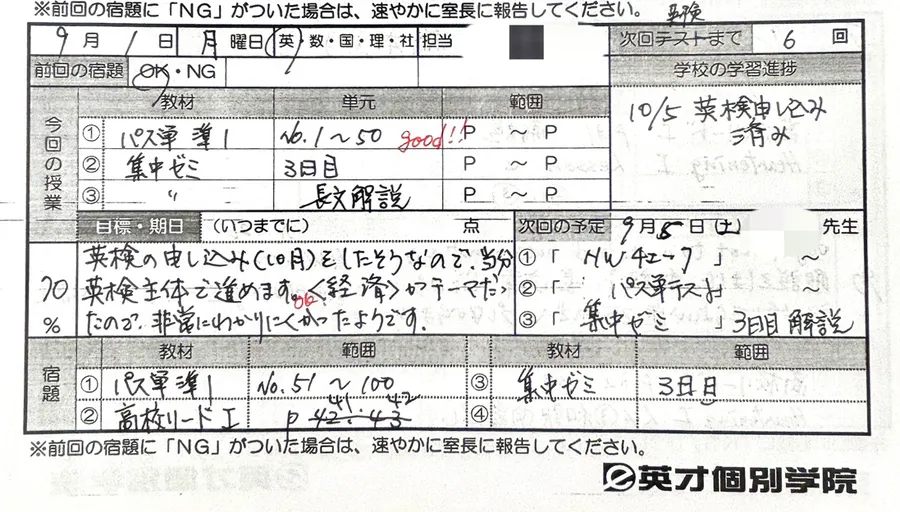 ※前回の宿題に「NG」がついた場合は、速やかに室長に報告してください。 英検
9月1日月曜日 英・数・国・理・社 担当 次回テストまで 6回
前回の宿題 OK・NG 学校の学習進捗
10/5 英検申し込み
済み
今回の授業 教材 単元 範囲
① パス単準1 No.1～50 good!! P ～ P
② 集中ゼミ 3日目 P ～ P
③ 〃 長文解説 P ～ P
目標・期日 (いつまでに) 点 次回の予定 9月5日(土) 先生
英検の申し込み(10月)をしたそうなので、当分
70 英検主体で進めます。<経済>がテーマだっ
% たので、非常にわかりにくかったようです。
①「 HWチェック 」 ～
②「 パス単テスト 」 ～
③「 集中ゼミ 」 3日目解説
宿題 教材 範囲 教材 範囲
① パス単準1 No.51～100 ③ 集中ゼミ 3日目
② 高校リードI P 42 41 ・ 43 42 ④
※前回の宿題に「NG」がついた場合は、速やかに室長に報告してください。
英才個別学院